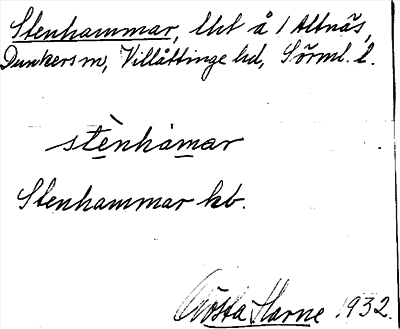 Stenhammar, lht å 1 Altnäs,
Dunkers sn, Villåttinge hd, Sörml. l.
stènhámar
Stenhammar kb.
Gösta Harne 1932.